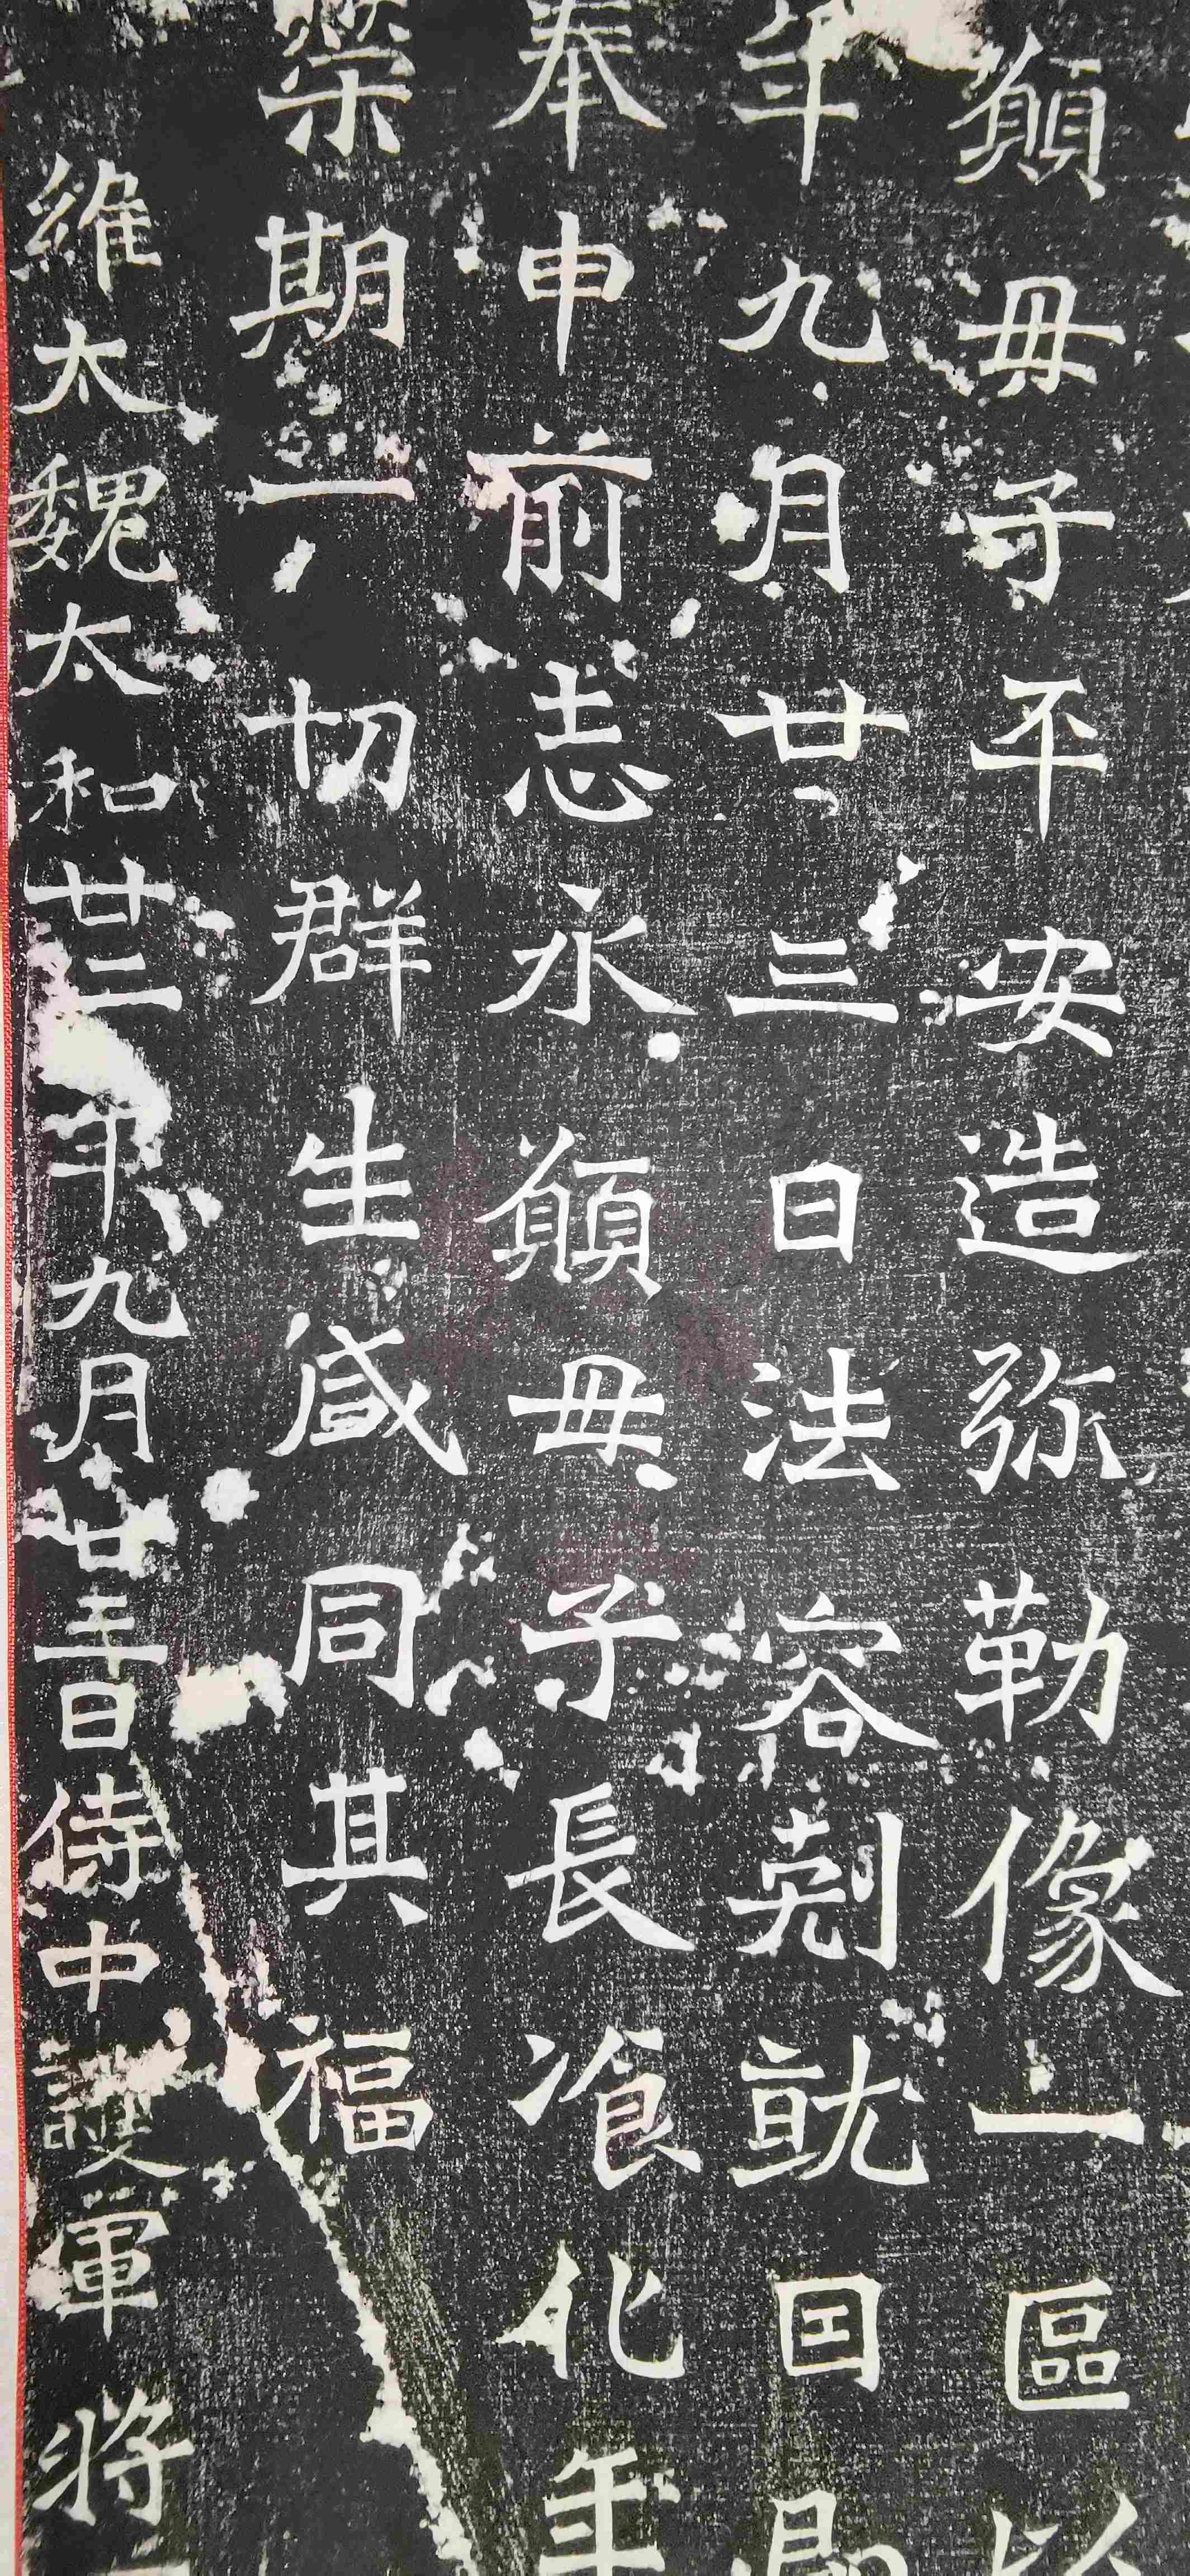 願母子平安造弥勒像一區以
年九月廿三日法容剋就囙即
奉申前志永願母子長飡化年
榮期一切群生咸同其福
維太魏太和廿二年九月廿三日侍中護軍將